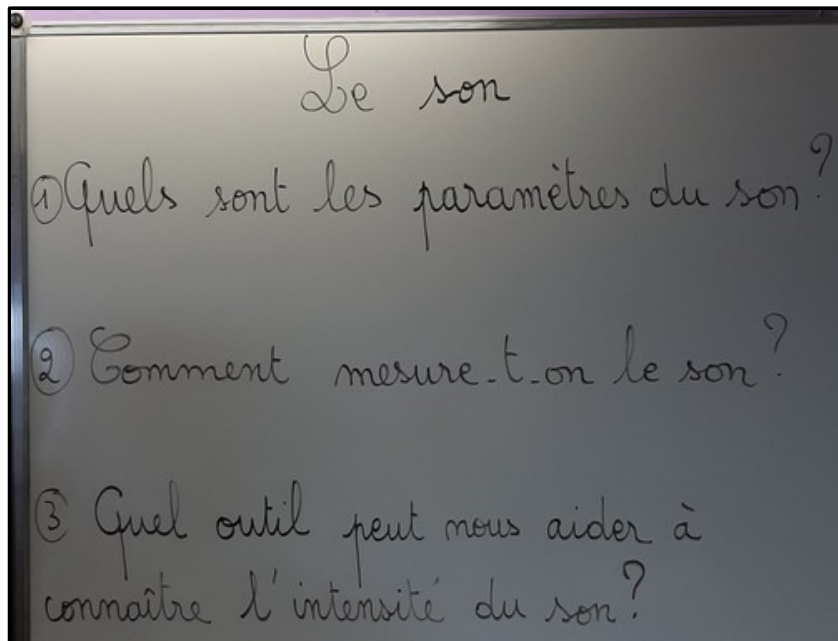 Le son
① Quels sont les paramètres du son ?
② Comment mesure-t-on le son ?
③ Quel outil peut nous aider à
connaître l'intensité du son ?